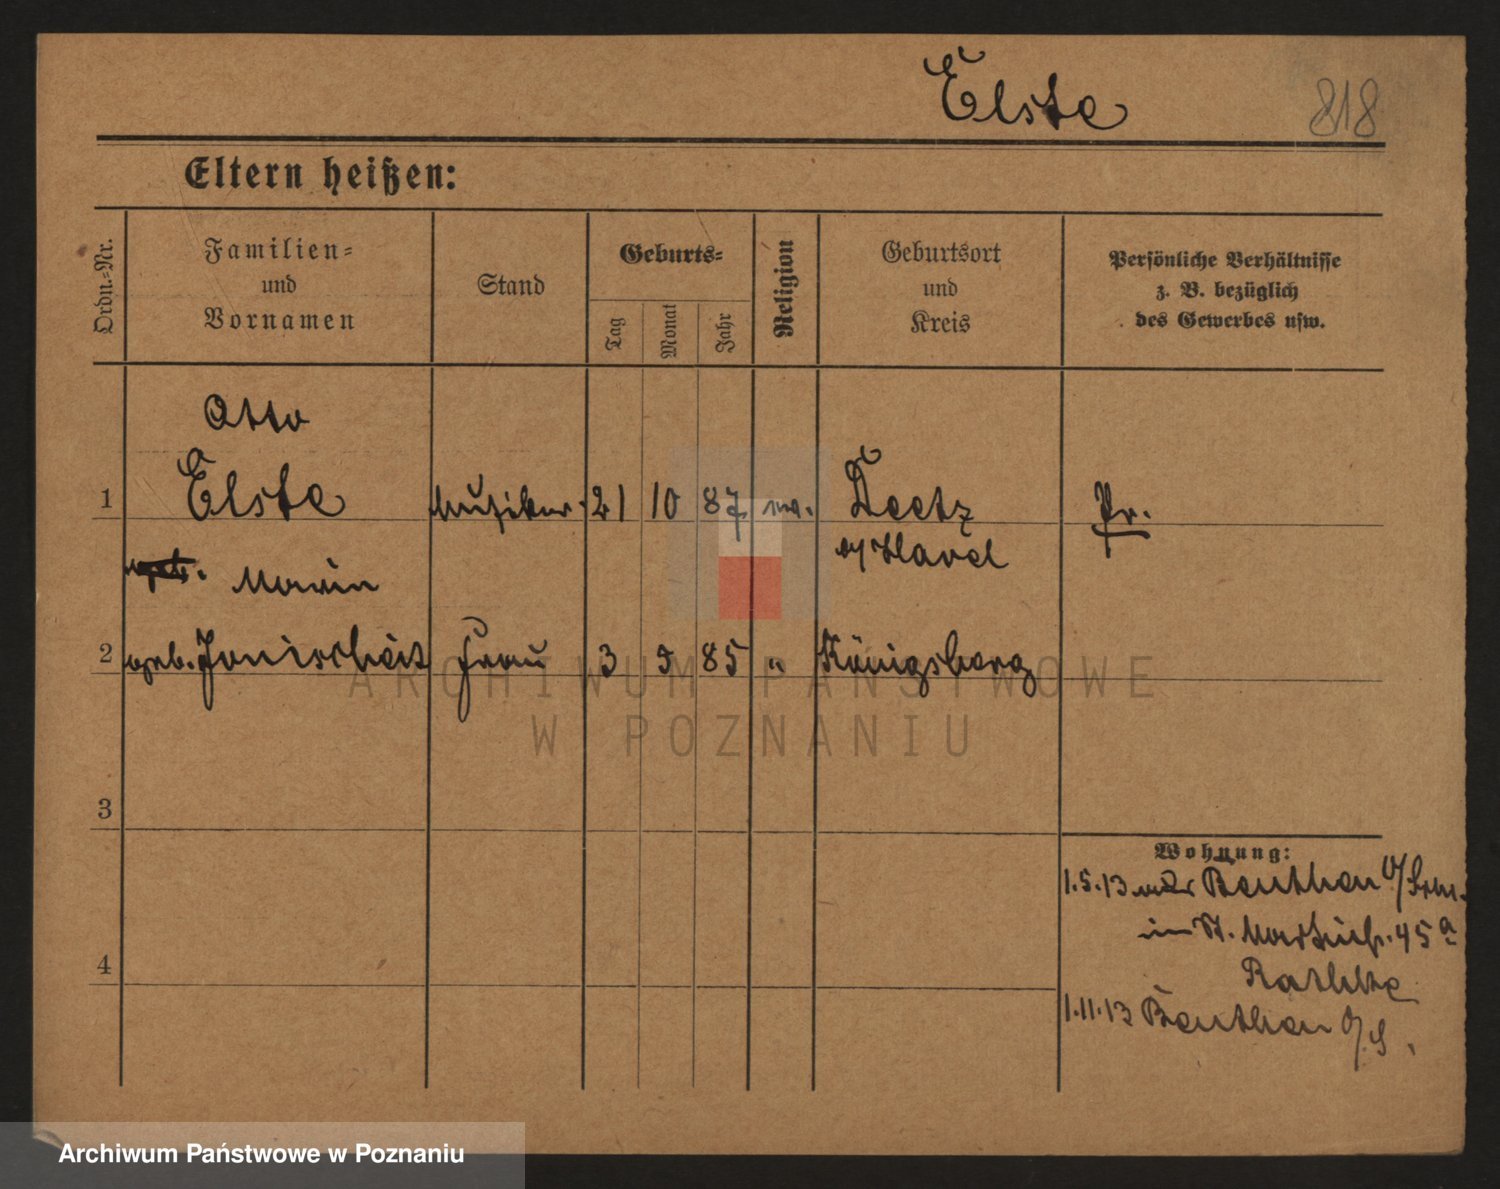 Elste 818
Eltern heißen:
Ordn.-Nr.
Familien-
und
Vornamen
Stand
Geburts-
Tag
Monat
Jahr
Religion
Geburtsort
und
Kreis
Persönliche Verhältnisse
z. B. bezüglich
des Gewerbes usw.
Otto
1 Elste Musiker 21 10 87 Deetz Pr.
Havel
2 geb. Frau 3 9 85 " Königsberg
ARCHIWUM PAŃSTWOWE
W POZNANIU
3
Wohnung:
1.5.13 Beuthen
in St. Martinstr. 45a
4
Rathke
1.11.13 Beuthen O/S.
Archiwum Państwowe w Poznaniu